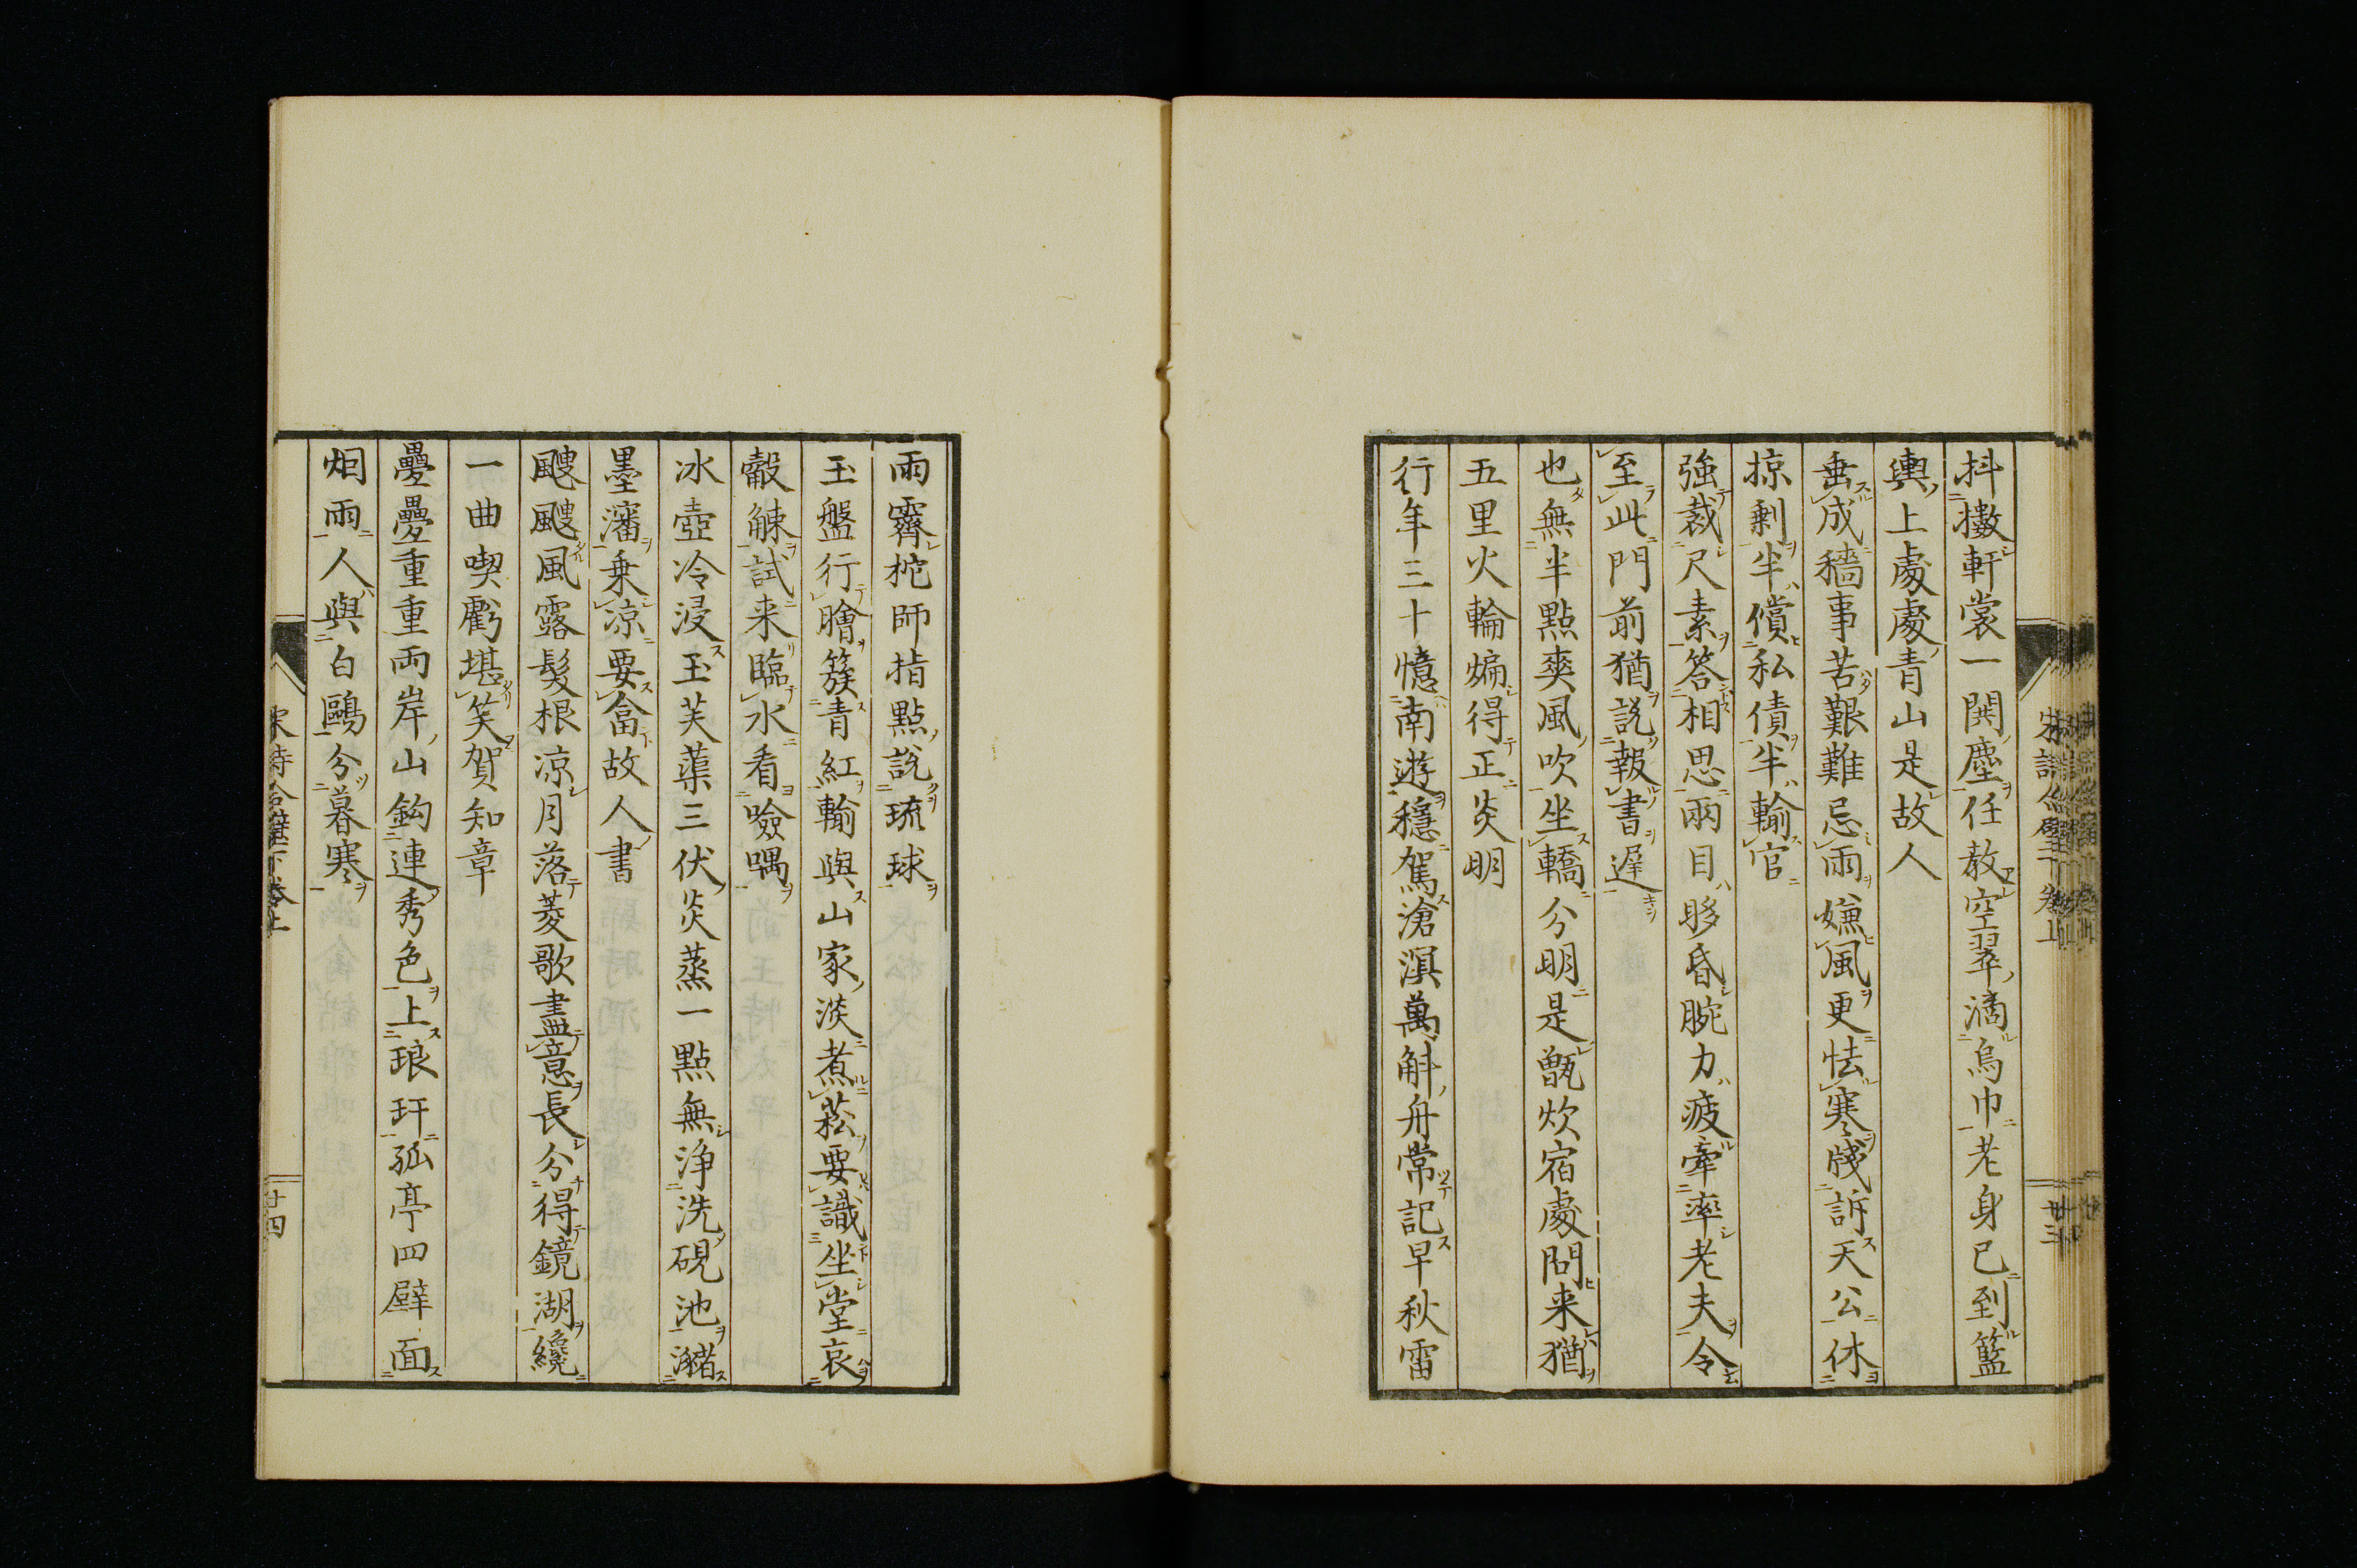 抖擻軒裳一関塵任敎空翠滴烏巾老身已到籃
輿上處處青山是故人
垂成穡事苦艱難忌雨嫌風更怯寒牋訴天公休
掠剩半償私債半輸官
強裁尺素答相思兩目眵昏腕力疲牽率老夫令
至此門前猶説報書遲
也無半點爽風吹坐轎分明是甑炊宿處問来猶
五里火輪煸得正炎明
行年三十憶南遊穩駕滄溟萬斛舟常記早秋雷
雨霽柁師指點説琉球
玉盤行膾簇青紅輸與山家淡煮菘要識坐堂哀
觳觫試来臨水看噞喁
冰壺冷浸玉芙蕖三伏炎蒸一點無淨洗硯池潴
墨瀋乗涼要畣故人書
颼颼風露髮根凉月落菱歌盡意長分得鏡湖纔
一曲喫虧堪笑賀知章
疊疊重重両岸山鈎連秀色上琅玕孤亭四壁面
烟雨人與白鷗分暮寒
宋詩合璧下巻上
廿四